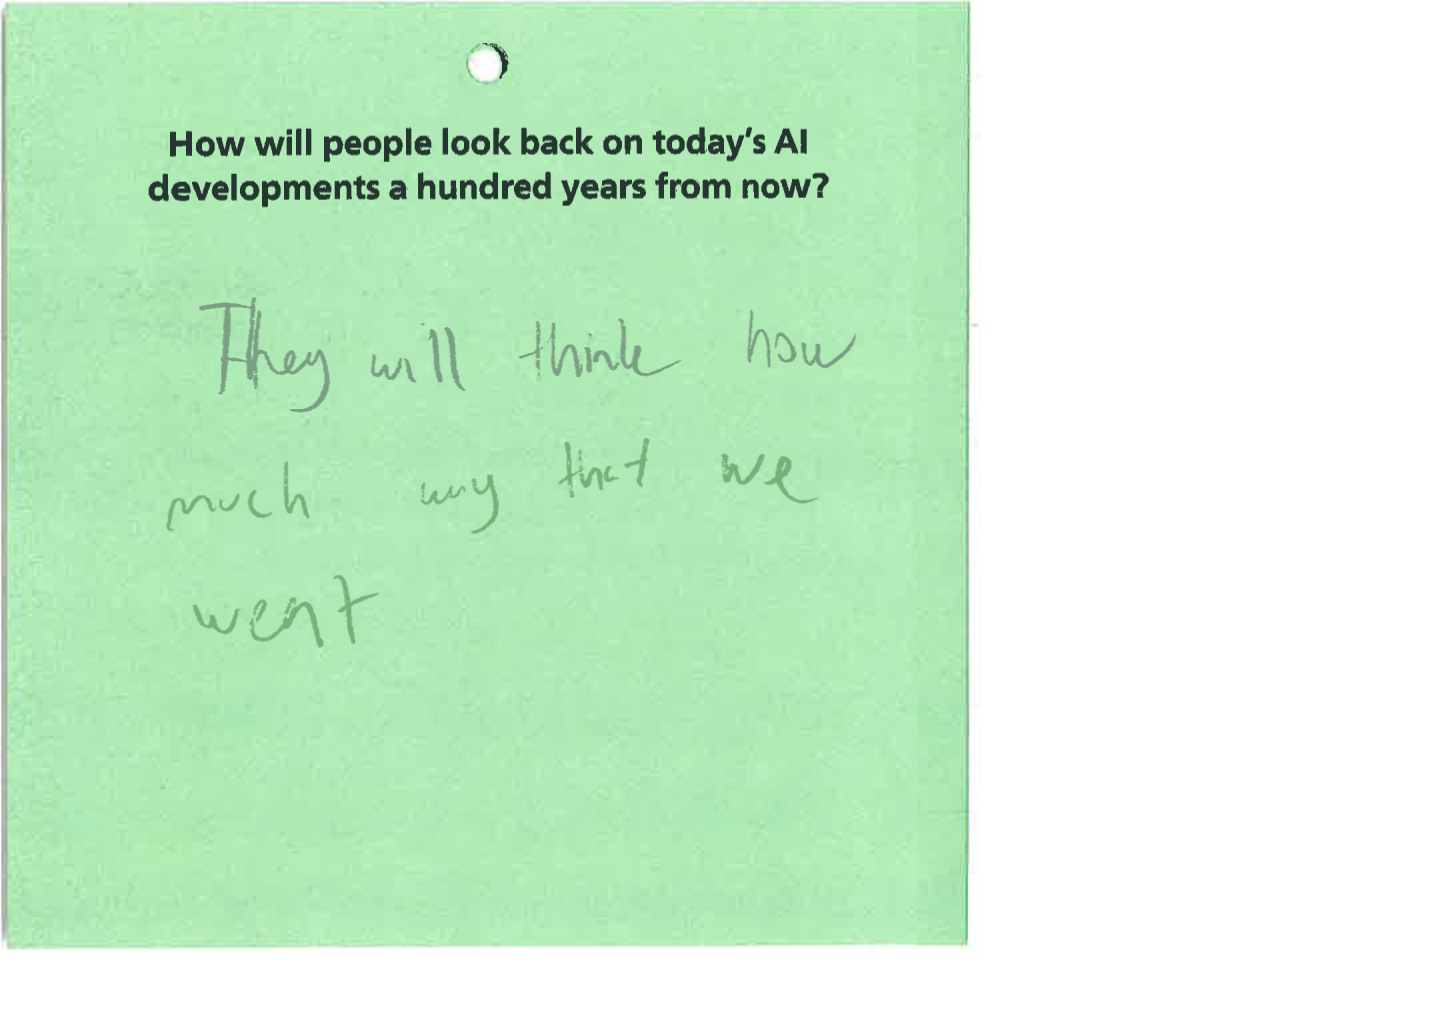 How will people look back on today's AI
developments a hundred years from now?
They will think how
much way that we
went